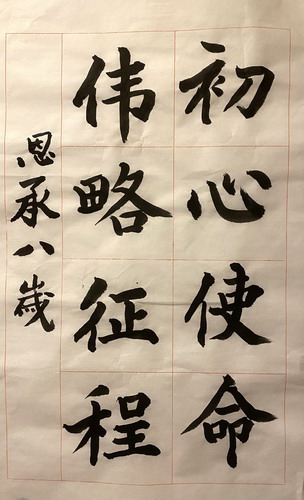 初心使命
伟略征程
恩承八歲